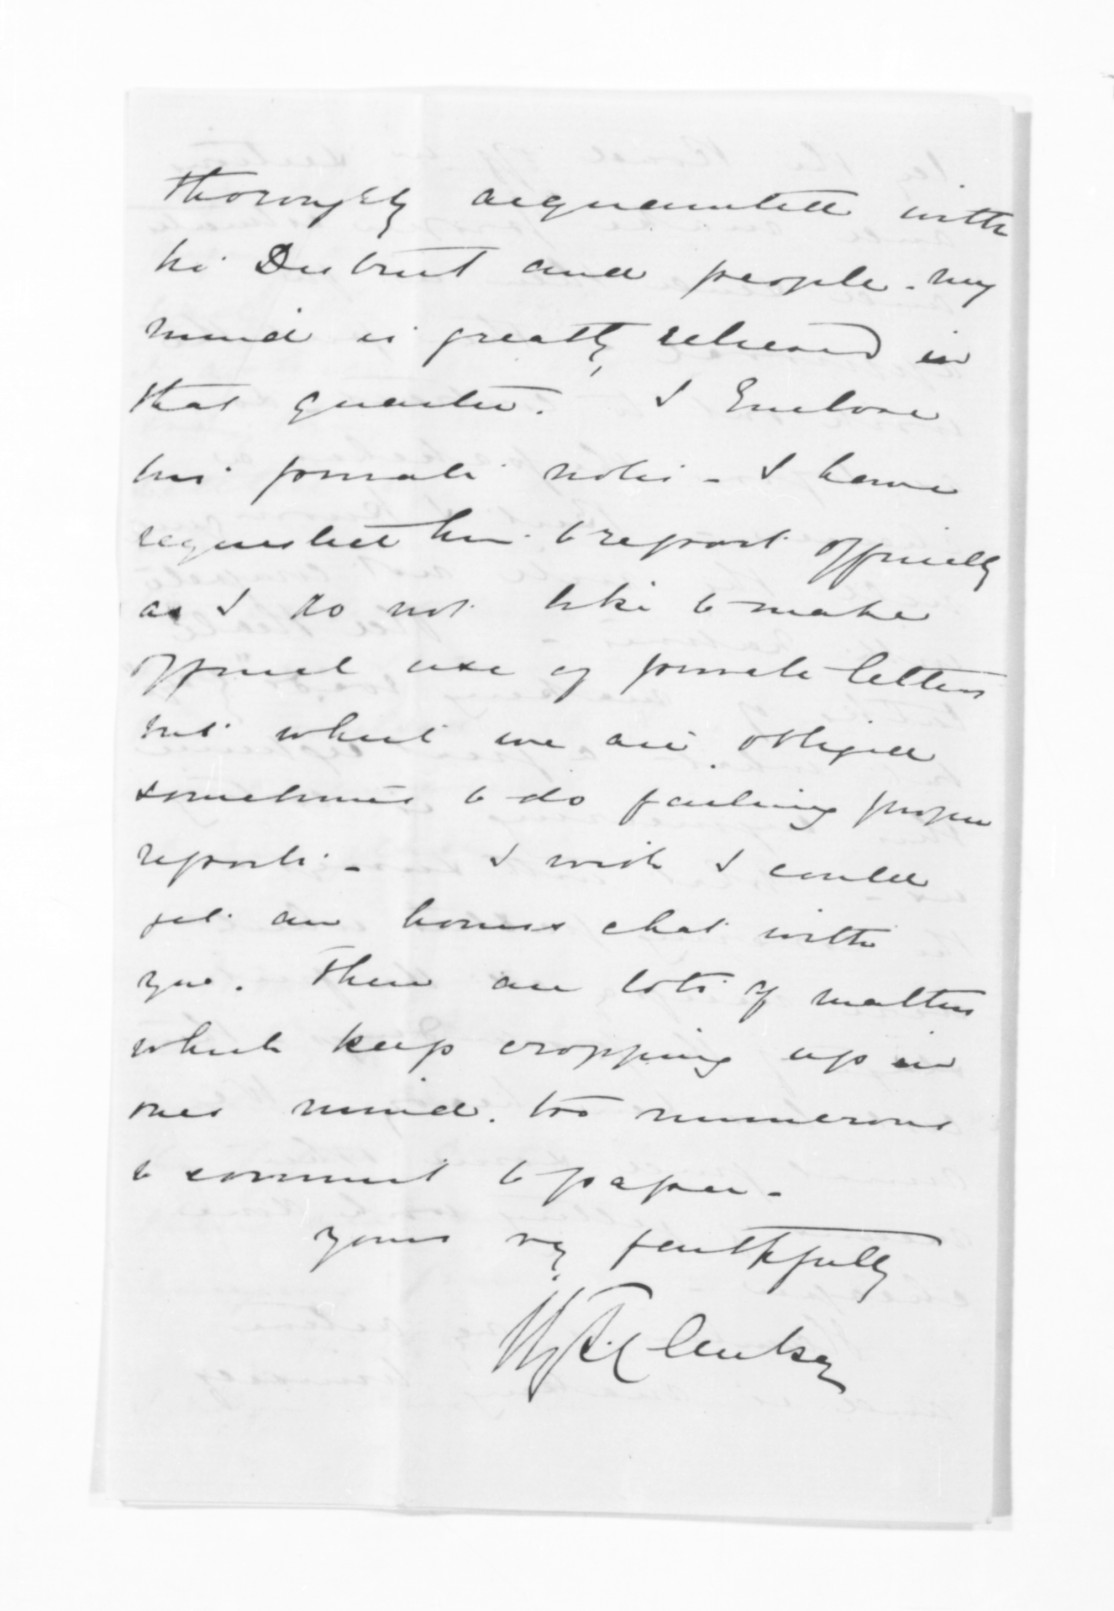 thoroughly acquainted with
his District and people - my
mind is greatly relieved in
that quarter. I Enclose
his private notes - I have
requested him to report officially
as I do not like to make
official use of private letters
but what we are obliged
sometimes to do failing proper
reports - I wish I could
get an hours chat with
you. There are lots of matters
which keep cropping up in
ones mind. too numerous
to commit to paper -
yours vy faithfully
H T Clarke